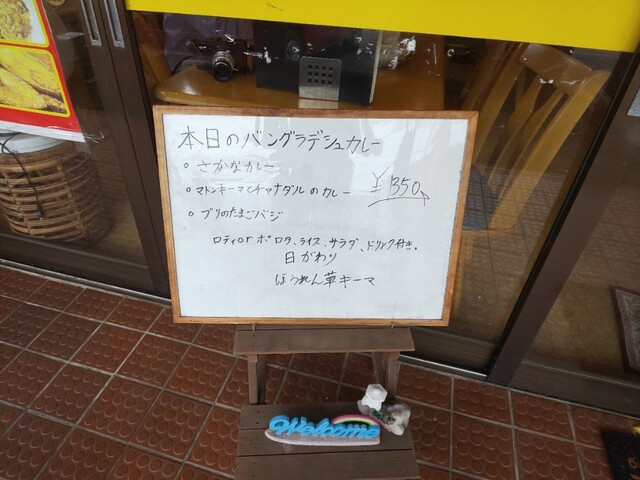 本日のバングラデシュカレー
○ さかなカレー
○ マトンキーマとチャナダルのカレー ¥1350
○ ブリのたまごバジ
ロティorポロタ、ライス、サラダ、ドリンク付き。
日がわり
ほうれん草キーマ
Welcome